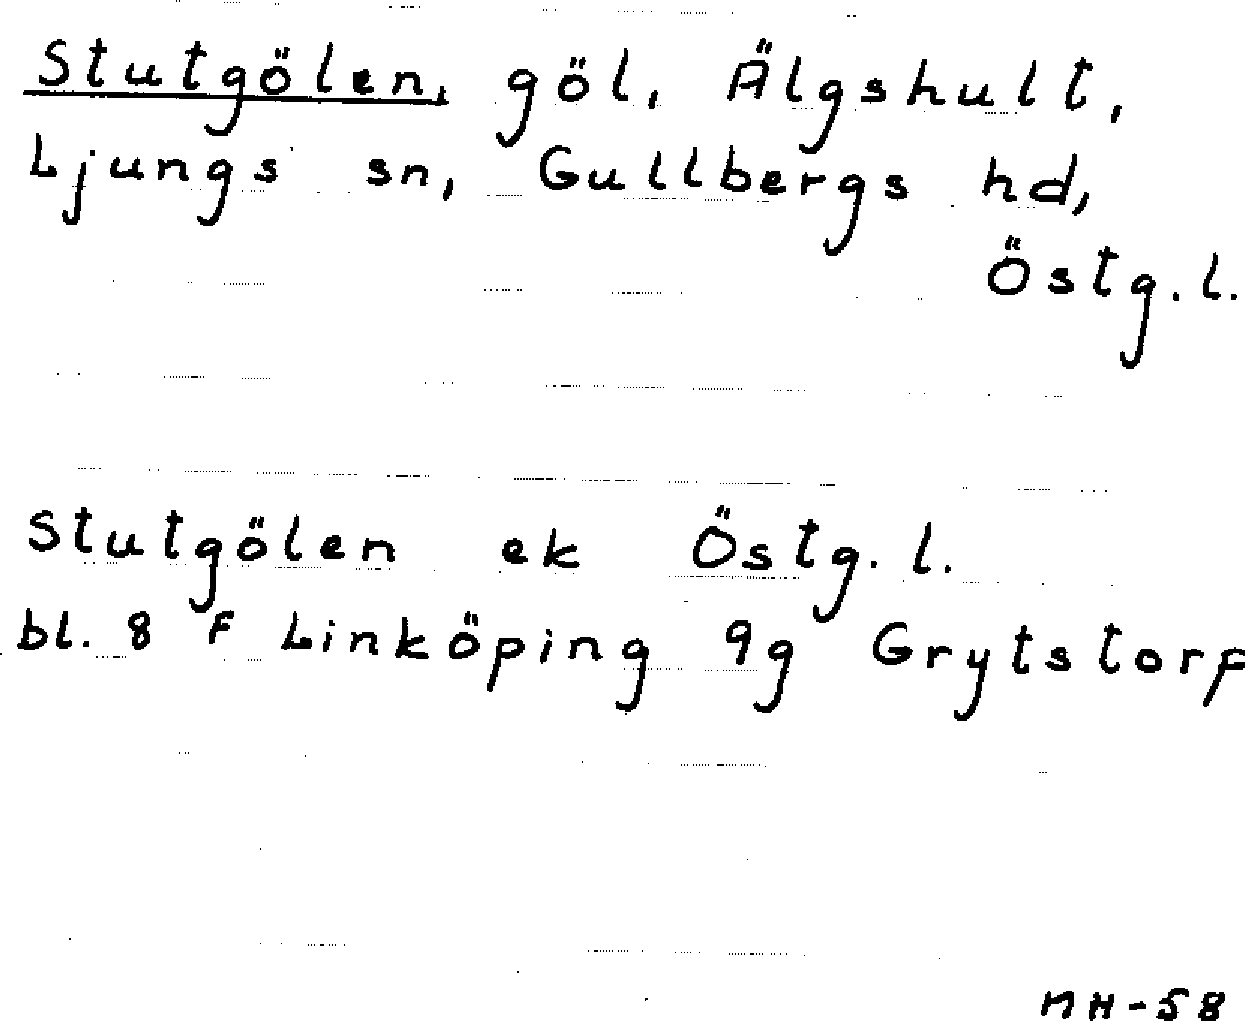 Stutgölen, göl, Älgshult,
Ljungs sn, Gullbergs hd,
Östg.l.
Stutgölen ek Östg.l.
bl. 8 F Linköping 9g Grytstorp
MH-58